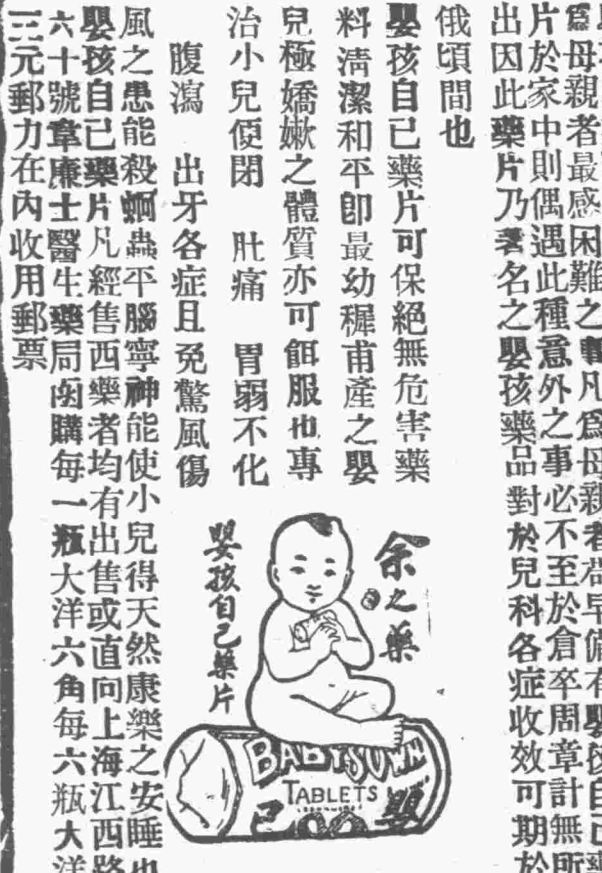 爲母親者最感困難之事凡爲母親者苟早備有嬰孩自己藥
片於家中則偶遇此種意外之事必不至於倉卒周章計無所
出因此藥片乃著名之嬰孩藥品對於兒科各症收效可期於
俄頃間也
嬰孩自己藥片可保絕無危害藥
料清潔和平卽最幼穉甫產之嬰
兒極嬌嫩之體質亦可餌服也專
治小兒便閉 肚痛 胃弱不化
腹瀉 出牙各症且免驚風傷
風之患能殺蛔蟲平腦寧神能使小兒得天然康樂之安睡也
嬰孩自己藥片凡經售西藥者均有出售或直向上海江西路
六十號韋廉士醫生藥局函購每一瓶大洋六角每六瓶大洋
三元郵力在內收用郵票
余之藥
嬰孩自己藥片
BABY'S OWN
TABLETS